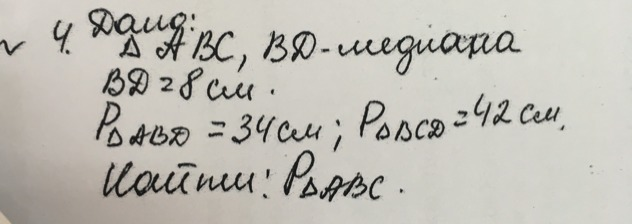 4. Дано:
Δ ABC, BD-медиана
BD = 8 см.
PΔABD = 34 см; PΔBCD = 42 см.
Найти: PΔABC.